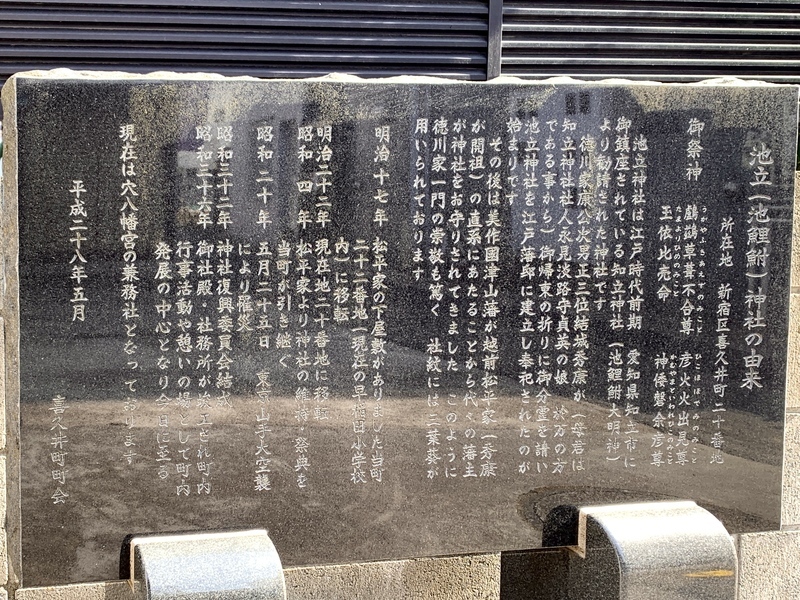 池立(池鯉鮒)神社の由来
所在地 新宿区喜久井町二十番地
御祭神 鸕鷀草葺不合尊 彦火火出見尊
うがやふきあえずのみこと ひこほほでみのみこと
玉依比売命 神倭磐余彦尊
たまよりひめのみこと かむやまといわれひこのみこと
池立神社は江戸時代前期 愛知県知立市に
御鎮座されている知立神社(池鯉鮒大明神)
より勧請された神社です
徳川家康公次男正三位結城秀康が(母君は
知立神社社人永見淡路守貞英の娘 於万の方
である事から)御帰東の折りに御分霊を請い
池立神社を江戸藩邸に建立し奉祀されたのが
始まりです
その後は美作国津山藩が越前松平家(秀康
が開祖)の直系にあたることから代々の藩主
が神社をお守りされてきました このように
徳川家一門の崇敬も篤く 社紋には三葉葵が
用いられております
明治十七年 松平家の下屋敷がありました当町
二十二番地(現在の早稲田小学校
内)に移転
明治二十二年 現在地二十番地に移転
昭和四年 松平家より神社の維持・祭典を
当町が引き継ぐ
昭和二十年 五月二十五日 東京山手大空襲
により罹災
昭和三十二年 神社復興委員会結成
昭和三十六年 御社殿・社務所が竣工され町内
行事活動や憩いの場として町内
発展の中心となり今日に至る
現在は穴八幡宮の兼務社となっております
平成二十八年五月
喜久井町町会